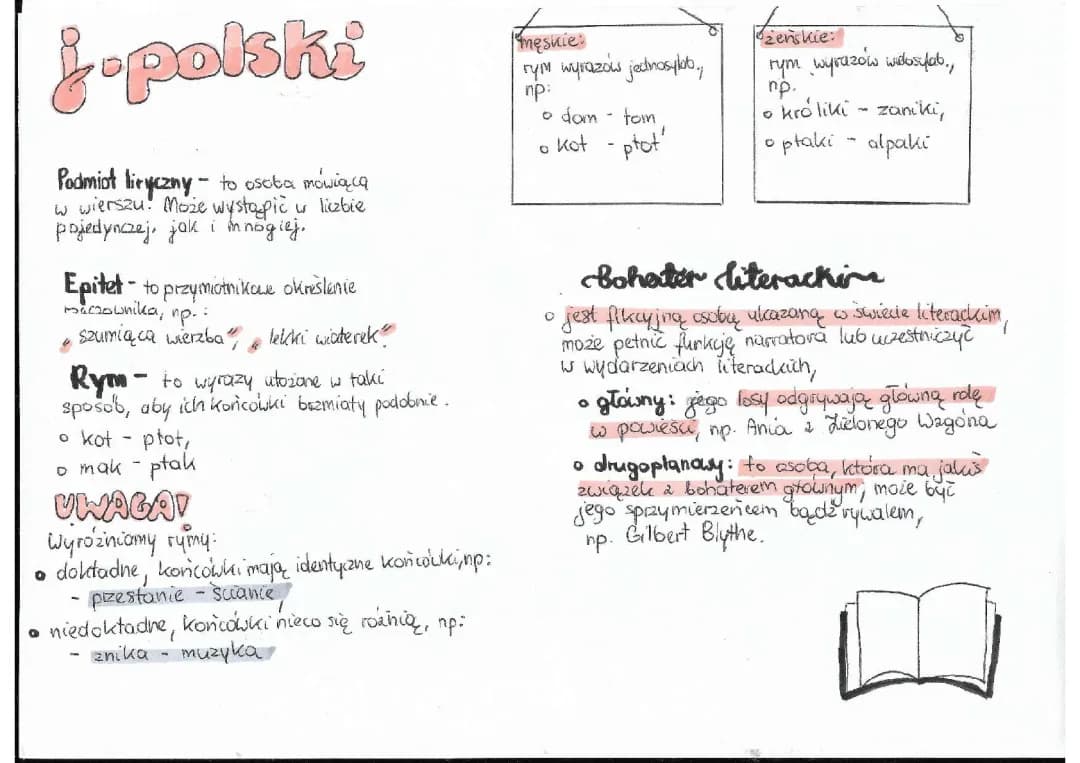 j. polski
Podmiot liryczny - to osoba mówiąca
w wierszu. Może wystąpić w liczbie
pojedynczej, jak i mnogiej.
Epitet - to przymiotnikowe określenie
rzeczownika, np.:
„szumiąca wierzba", „lekki wiaterek"
Rym - to wyrazy ułożone w taki
sposób, aby ich końcówki brzmiały podobnie.
○ kot - płot,
○ mak - ptak
UWAGA!
Wyróżniamy rymy:
○ dokładne, końcówki mają identyczne końcówki, np:
- przestanie - ścianie,
○ niedokładne, końcówki nieco się różnią, np:
- znika - muzyka
męskie:
rym wyrazów jednosylab.,
np:
○ dom - tom,
○ kot - płot
żeńskie:
rym wyrazów wielosylab.,
np.
○ króliki - zaniki,
○ ptaki - alpaki
Bohater literacki
○ jest fikcyjną osobą ukazaną w świecie literackim,
może pełnić funkcję narratora lub uczestniczyć
w wydarzeniach literackich,
○ główny: jego losy odgrywają główną rolę
w powieści, np. Ania z Zielonego Wzgórza
○ drugoplanowy: to osoba, która ma jakiś
związek z bohaterem głównym, może być
jego sprzymierzeńcem bądź rywalem,
np. Gilbert Blythe.